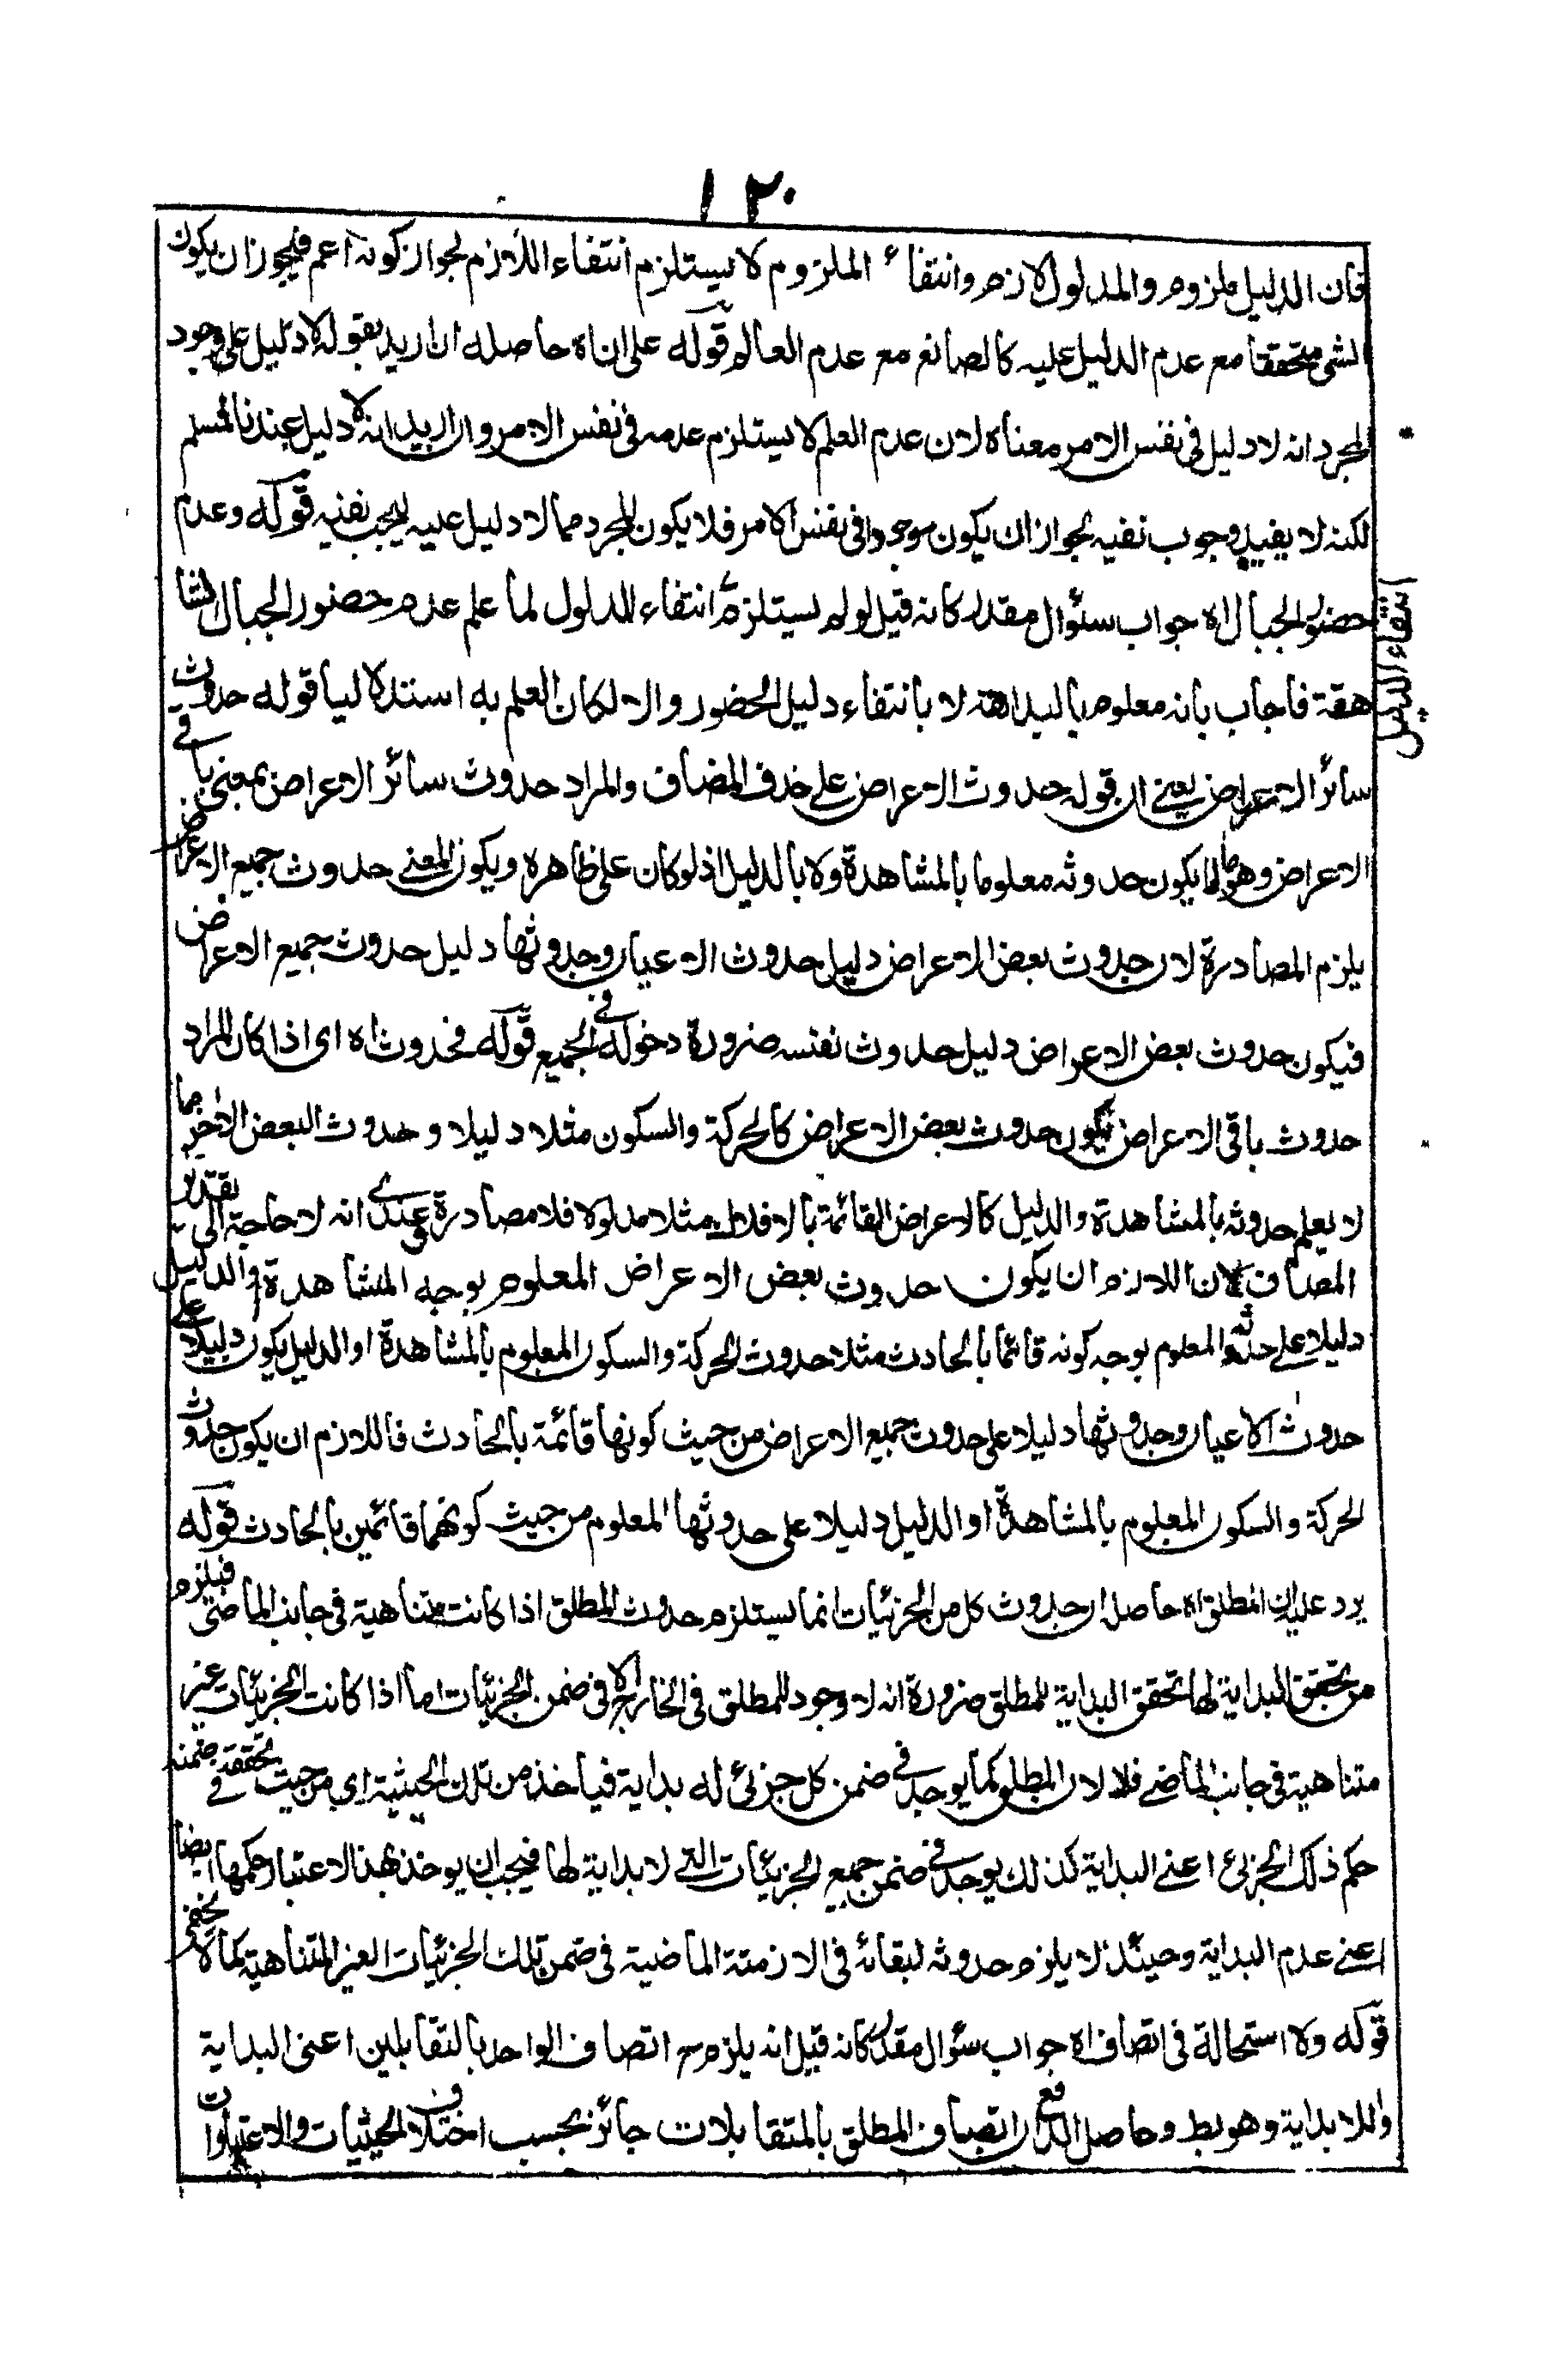 ١٢٠
فان الدليل ملزوم والمدلول لازم وانتفاء الملزوم لا يستلزم انتفاء اللازم لجواز كونه اعم فيجوز ان يكون
الشئ متحققا مع عدم الدليل عليه كالصانع مع عدم العالم قوله على اناه حاصله ان اريد بقوله لا دليل على وجود
المجرد انه لا دليل فى نفس الامر معناه لان عدم العلم لا يستلزم عدمه فى نفس الامر وان اريد انه لا دليل عندنا فمسلم
لكنه لا يفيد وجوب نفيه لجواز ان يكون موجودا فى نفس الامر فلا يكون المجرد مما لا دليل عليه يجب نفيه قوله وعدم
حضور الجبال اه جواب سئوال مقدر كانه قيل لو لم يستلزم انتفاء المدلول لما علم عدم حضور الجبال الشا
انتفاء الدليل
هقة فاجاب بانه معلوم بالبداهة لا بانتفاء دليل الحضور والا لكان العلم به استدلاليا قوله حدوث
سائر الاعراض يعنے ان قوله حدوث الاعراض على حذف المضاف والمراد حدوث سائر الاعراض بمعنى باقے
الاعراض وهو ما لما يكون حدوثه معلوما بالمشاهدة ولا بالدليل اذ لو كان على ظاهره ويكون المعنے حدوث جميع الاعراض
يلزم المصادرة لان حدوث بعض الاعراض دليل حدوث الاعيان وحدوثها دليل حدوث جميع الاعراض
فيكون حدوث بعض الاعراض دليل حدوث نفسه ضرورة دخوله فے الجميع قوله فحدوث اه اى اذا كان المراد
حدوث باقى الاعراض يكون حدوث بعض الاعراض كالحركة والسكون مثلا دليلا وحدوث البعض الاخر مما
لا يعلم حدوثه بالمشاهدة والدليل كالاعراض القائمة بالافلاك مثلا مدلولا فلا مصادرة عندے انه لا حاجة الى تقدير
المضاف لان اللازم ان يكون حدوث بعض الاعراض المعلوم بوجه المشاهدة او الدليل
دليلا على حدوثه المعلوم بوجه كونه قائما بالحادث مثلا حدوث الحركة والسكون المعلوم بالمشاهدة او الدليل يكون دليلا على
حدوث الاعيان وحدوثها دليلا على حدوث جميع الاعراض من حيث كونها قائمة بالحادث فاللازم ان يكون حدوث
الحركة والسكون المعلوم بالمشاهدة او الدليل دليلا على حدوثها المعلوم من حيث كونهما قائمين بالحادث قوله
يرد عليه ان المطلق اه حاصله ان حدوث كل من الجزئيات انما يستلزم حدوث المطلق اذا كانت متناهية فى جانب الماضى فيلزم
من تحقق البداية لها تحقق البداية للمطلق ضرورة انه لا وجود للمطلق فى الخارج الا فى ضمن الجزئيات اما اذا كانت الجزئيات غير
متناهية فى جانب الماضے فلا لان المطلق كما يوجد فى ضمن كل جزئى له بداية فياخذ من تلك الحيثية اى من حيث تحققه فے ضمنه
حكم ذلك الجزئ اعنے البداية كذلك يوجد فى ضمن جميع الجزئيات التے لا بداية لها فيجب ان يوخذ بهذا الاعتبار حكمها ايضا
اعنے عدم البداية وحينئذ لا يلزم حدوثه لبقائه فى الازمنة الماضية فى ضمن تلك الجزئيات الغير المتناهية كما لا يخفى
قوله ولا استحالة فى اتصاف اه جواب سئوال مقدر كانه قيل انه يلزم ح اتصاف الواحد بالمتقابلين اعنى البداية
واللا بداية وهو بط وحاصل الدفع ان اتصاف المطلق بالمتقابلات جائز بحسب اختلاف الحيثيات والاعتبارات